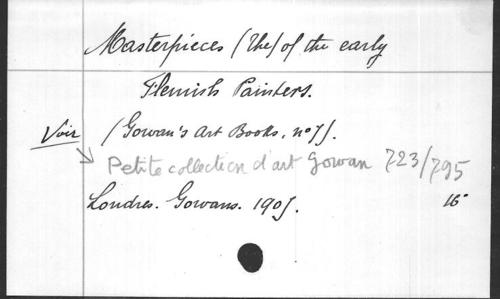 Masterpieces (The) of the early
Flemish Painters.
Voir (Gowan's Art Books, nº 7).
Petite collection d'art Gowan 723/795
Londres. Gowans. 1907. 16°